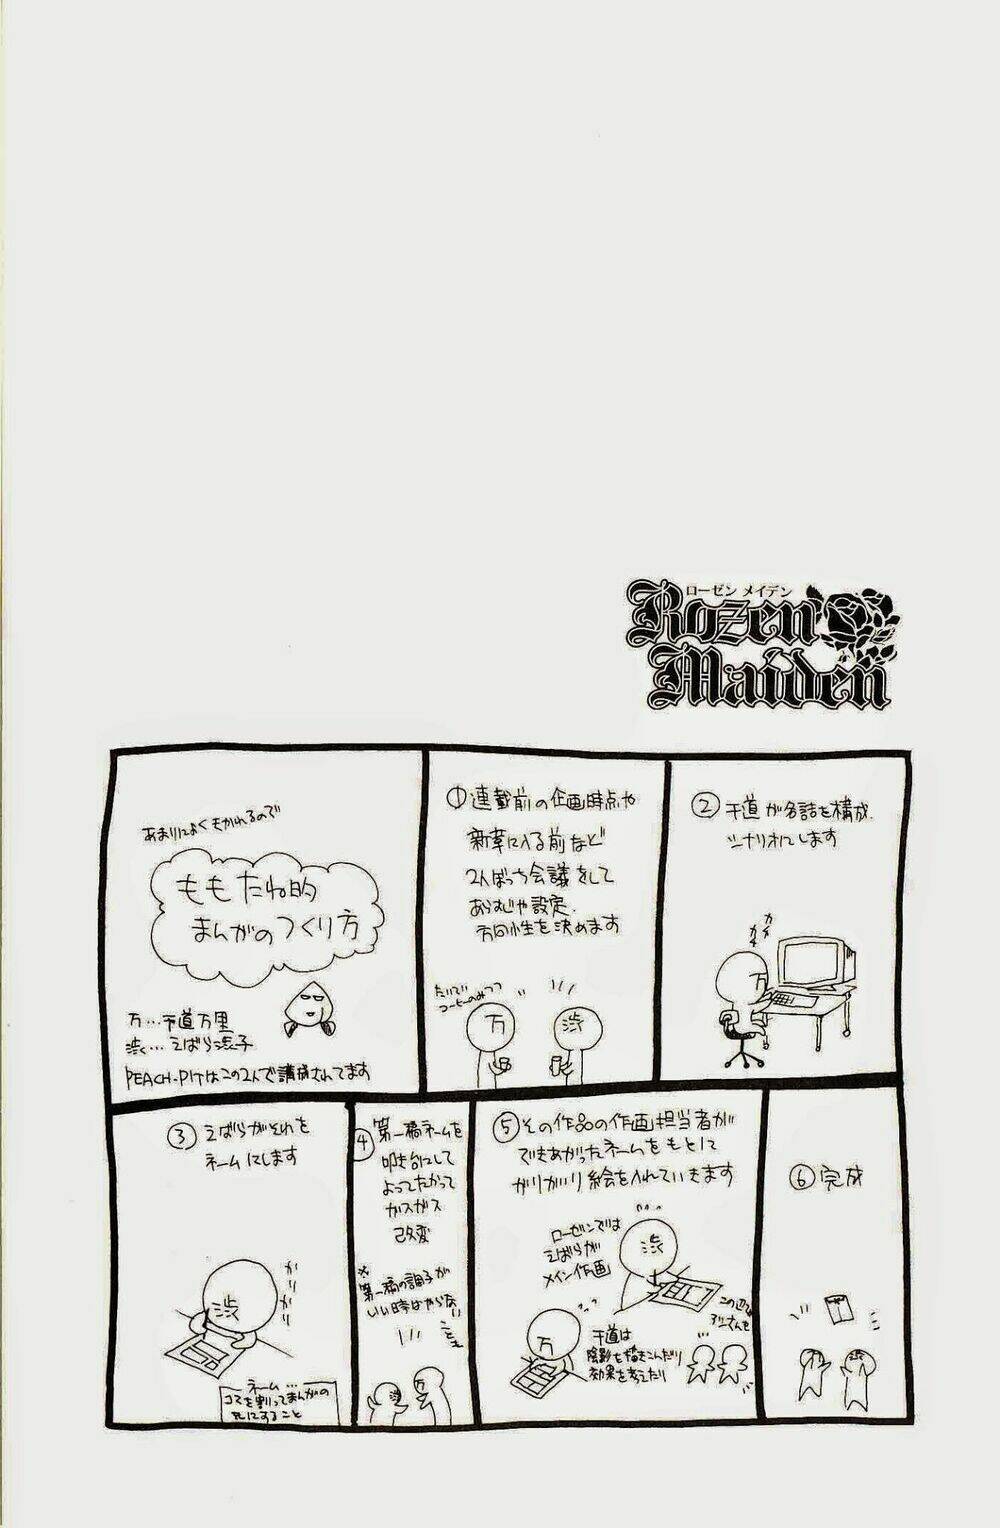 ローゼン メイデン
Rozen
Maiden
あまりによくきかれるので
ももたね的
まんがのつくり方
万…千道万里
渋…えばら渋子
PEACH-PITはこの2人で構成されてます
①連載前の企画時点や
新章に入る前など
2人ぼっち会議をして
あらすじや設定、
方向性を決めます
たいてい
コーヒーのみつつ
万
渋
②千道が各話を構成、
シナリオにします
カチ
カチ
万
③えばらがそれを
ネームにします
かりかり
渋
ネーム…
コマを割ってまんがの
元にすること
④第一稿ネームを
叩き台にして
よってたかって
ガスガス
改変
※
第一稿の調子が
いい時はやらない
渋
万
⑤その作品の作画担当者が
できあがったネームをもとに
ガリガリ絵を入れていきます
ローゼンでは
えばらが
メイン作画
渋
この辺で
アシさんも
万
千道は
陰影を描きこんだり
効果を考えたり
⑥完成
渋